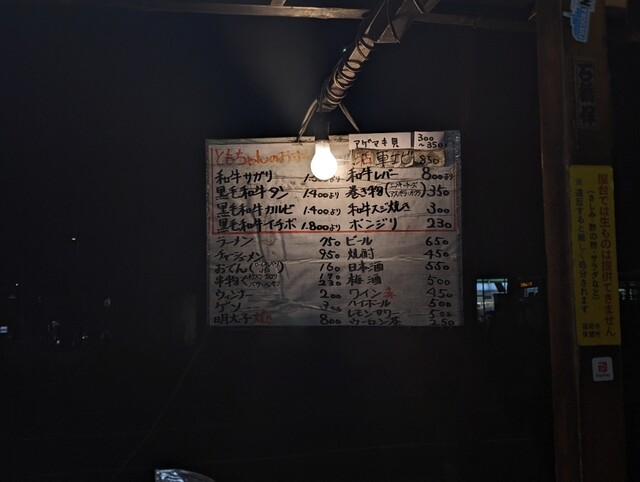 アゲマキ貝 300～350
ともちゃんのお
車エビ 850
和牛サガリ
和牛レバー 800より
黒毛和牛タン 1.400より
巻き物 350
黒毛和牛カルビ 1.400より
和牛スジ焼き 300
黒毛和牛イチボ 1.800より
ボンジリ 230
ラーメン 750
ビール 650
チャーシューメン 950
焼酎 450
おでん 160
日本酒 550
串物
梅酒 500
ウィンナー 200
ワイン 赤 450
ハイボール 500
レモンサワー 500
明太子 800
ウーロン茶 250
屋台では生ものは提供できません
(さしみ・酢の物・サラダなど)
※違反すると厳しく処分されます